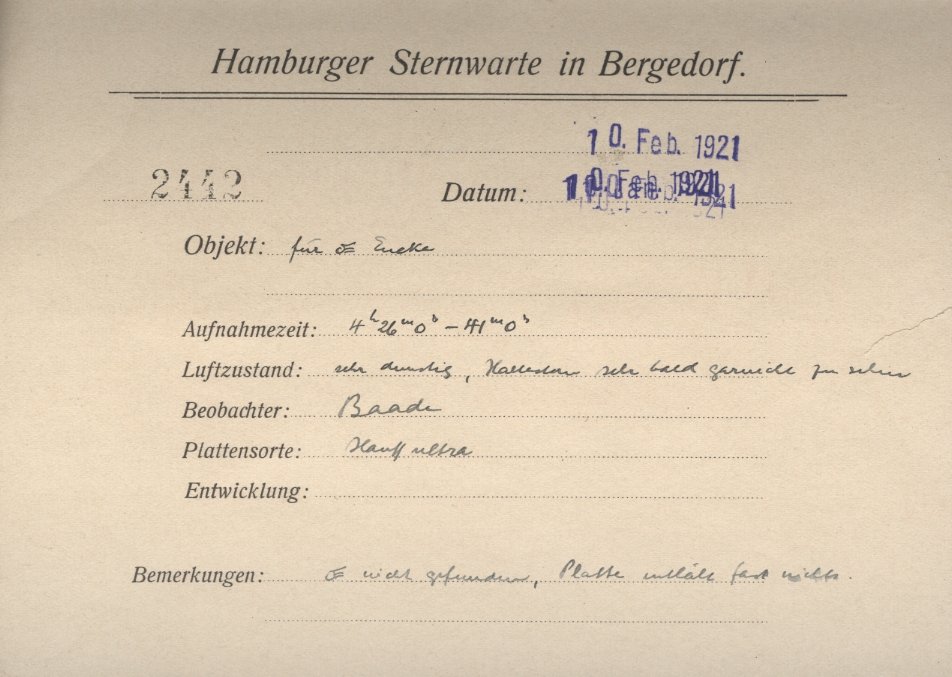 Hamburger Sternwarte in Bergedorf.
10. Feb. 1921
2442 Datum: 10. Feb. 1921
Objekt: für ☄ Encke
Aufnahmezeit: 4ʰ26ᵐ0ˢ – 41ᵐ0ˢ
Luftzustand: sehr dunstig, sehr bald garnicht zu sehen
Beobachter: Baade
Plattensorte: Hauff ultra
Entwicklung:
Bemerkungen: ☄ nicht gefunden, Platte enthält fast nichts.